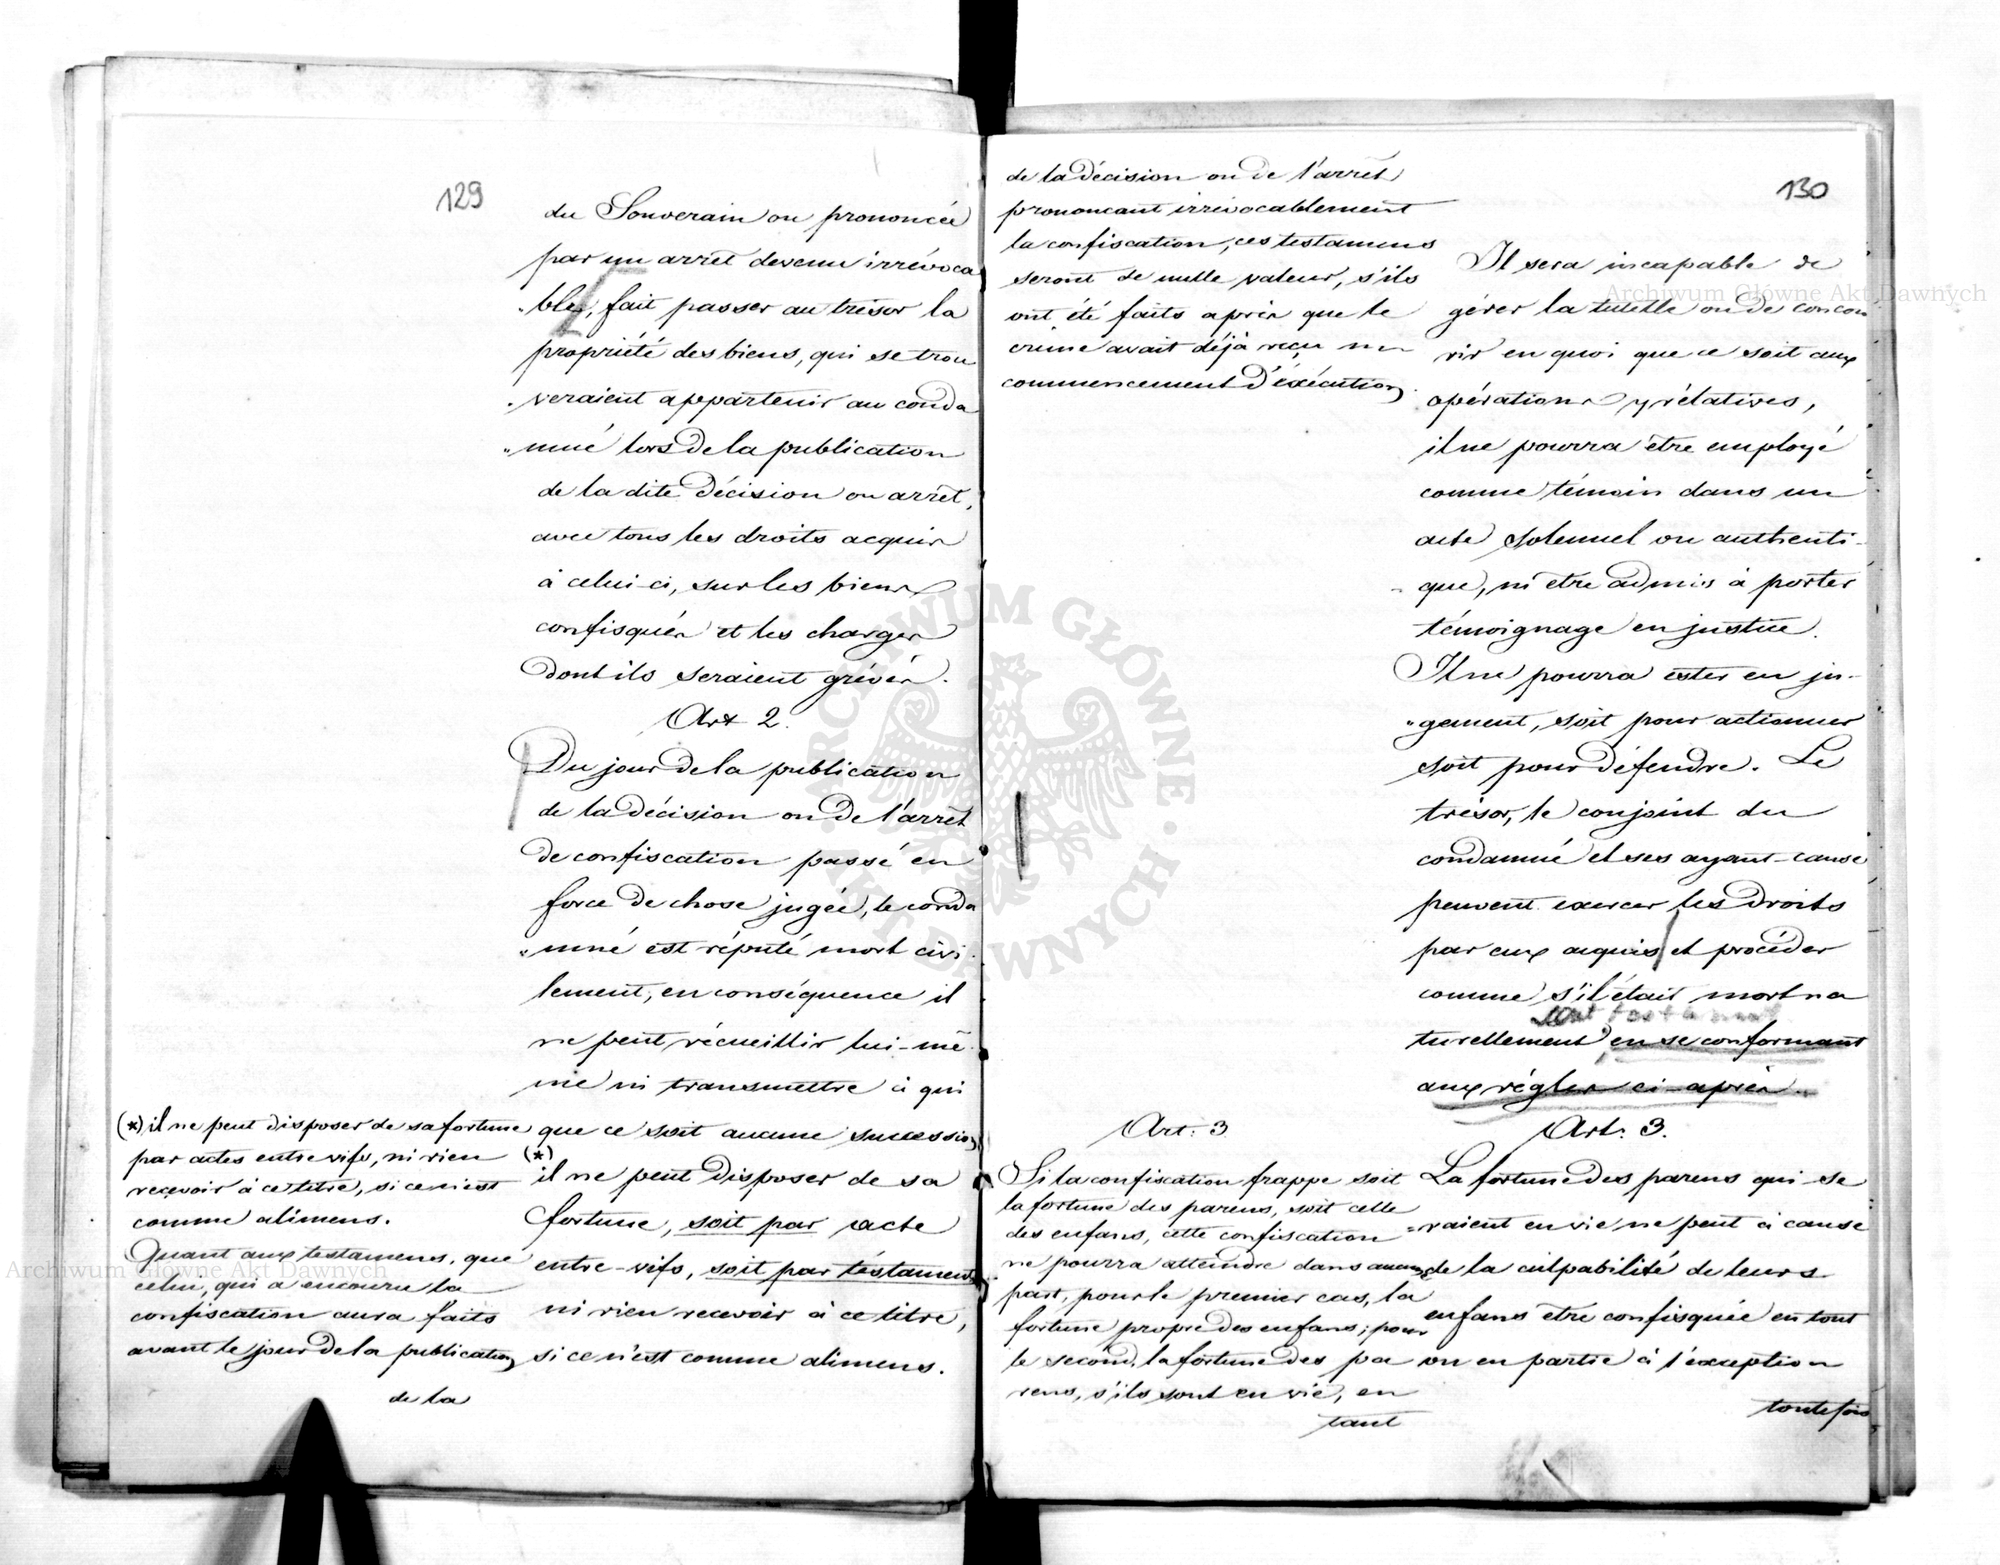 129
du Souverain ou prononcée
par un arrêt devenu irrévoca
ble, fait passer au trésor la
propriété des biens, qui se trou
veraient appartenir au conda
mné lors de la publication
de la dite décision ou arrêt,
avec tous les droits acquis
à celui-ci, sur les biens
confisqués et les charges
dont ils seraient grévés.
Art 2.
Du jour de la publication
de la décision ou de l'arrêt
de confiscation passé en
force de chose jugée, le conda
mné est réputé mort civi
lement, en conséquence il
ne peut récueillir lui-mê
me ni transmettre à qui
que ce soit aucune succession
(*)
il ne peut disposer de sa
fortune, soit par acte
entre-vifs, soit par téstament
ni rien recevoir à ce titre,
si ce n'est comme alimens.
(*) il ne peut disposer de sa fortune
par actes entre vifs, ni rien
reçevoir à ce titre, si ce n'est
comme alimens.
Quant aux testamens, que
celui, qui a encouru la
confiscation aura faits
avant le jour de la publication
de la
130
de la décision ou de l'arrêt
prononcant irrévocablement
la confiscation, ces testamens
seront de nulle valeur, s'ils
ont été faits après que le
crime avait déjà reçu un
commencement d'éxécution.
Il sera incapable de
gérer la tutelle ou de concou
rir en quoi que ce soit aux
opérations y rélatives,
il ne pourra être employé
comme témoin dans un
acte solennel ou authenti-
que, ni etre admis à porter
témoignage en justice.
Il ne pourra ester en ju-
gement, soit pour actionner
soit pour défendre. Le
trésor, le conjoint du
condamné et ses ayant-cause
peuvent exercer les droits
par eux acquis et procéder
comme s'il était mort na
turellement en se conformant
aux régles ci-après.
Art. 3
Si la confiscation frappe soit
la fortune des parens, soit celle
des enfans, cette confiscation
ne pourra atteindre dans aucune
part, pour le premier cas, la
fortune propre des enfans; pour
le second, la fortune des pa
rens, s'ils sont en vie, en
tant
Art. 3.
La fortune des parens qui se
raient en vie ne peut à cause
de la culpabilité de leurs
enfans etre confisquée en tout
ou en partie à l'exception
toutefois
Archiwum Główne Akt Dawnych
Archiwum Główne Akt Dawnych
ARCHIWUM GŁÓWNE · AKT DAWNYCH ·